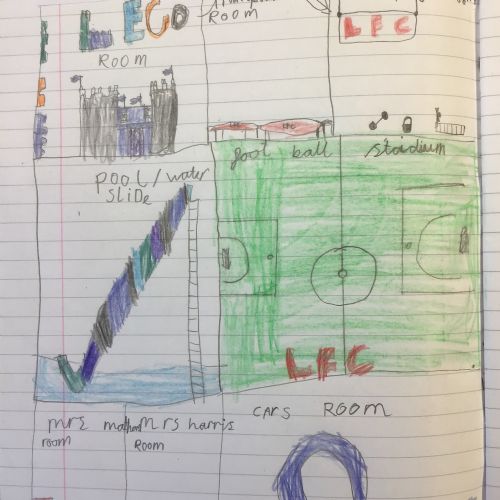 LEGO
ROOM
ROOM
LFC
LFC
LFC
foot ball /stadium
POOL/water
SLiDe
LFC
mrs
room
mrs harris
ROOM
CARS ROOM